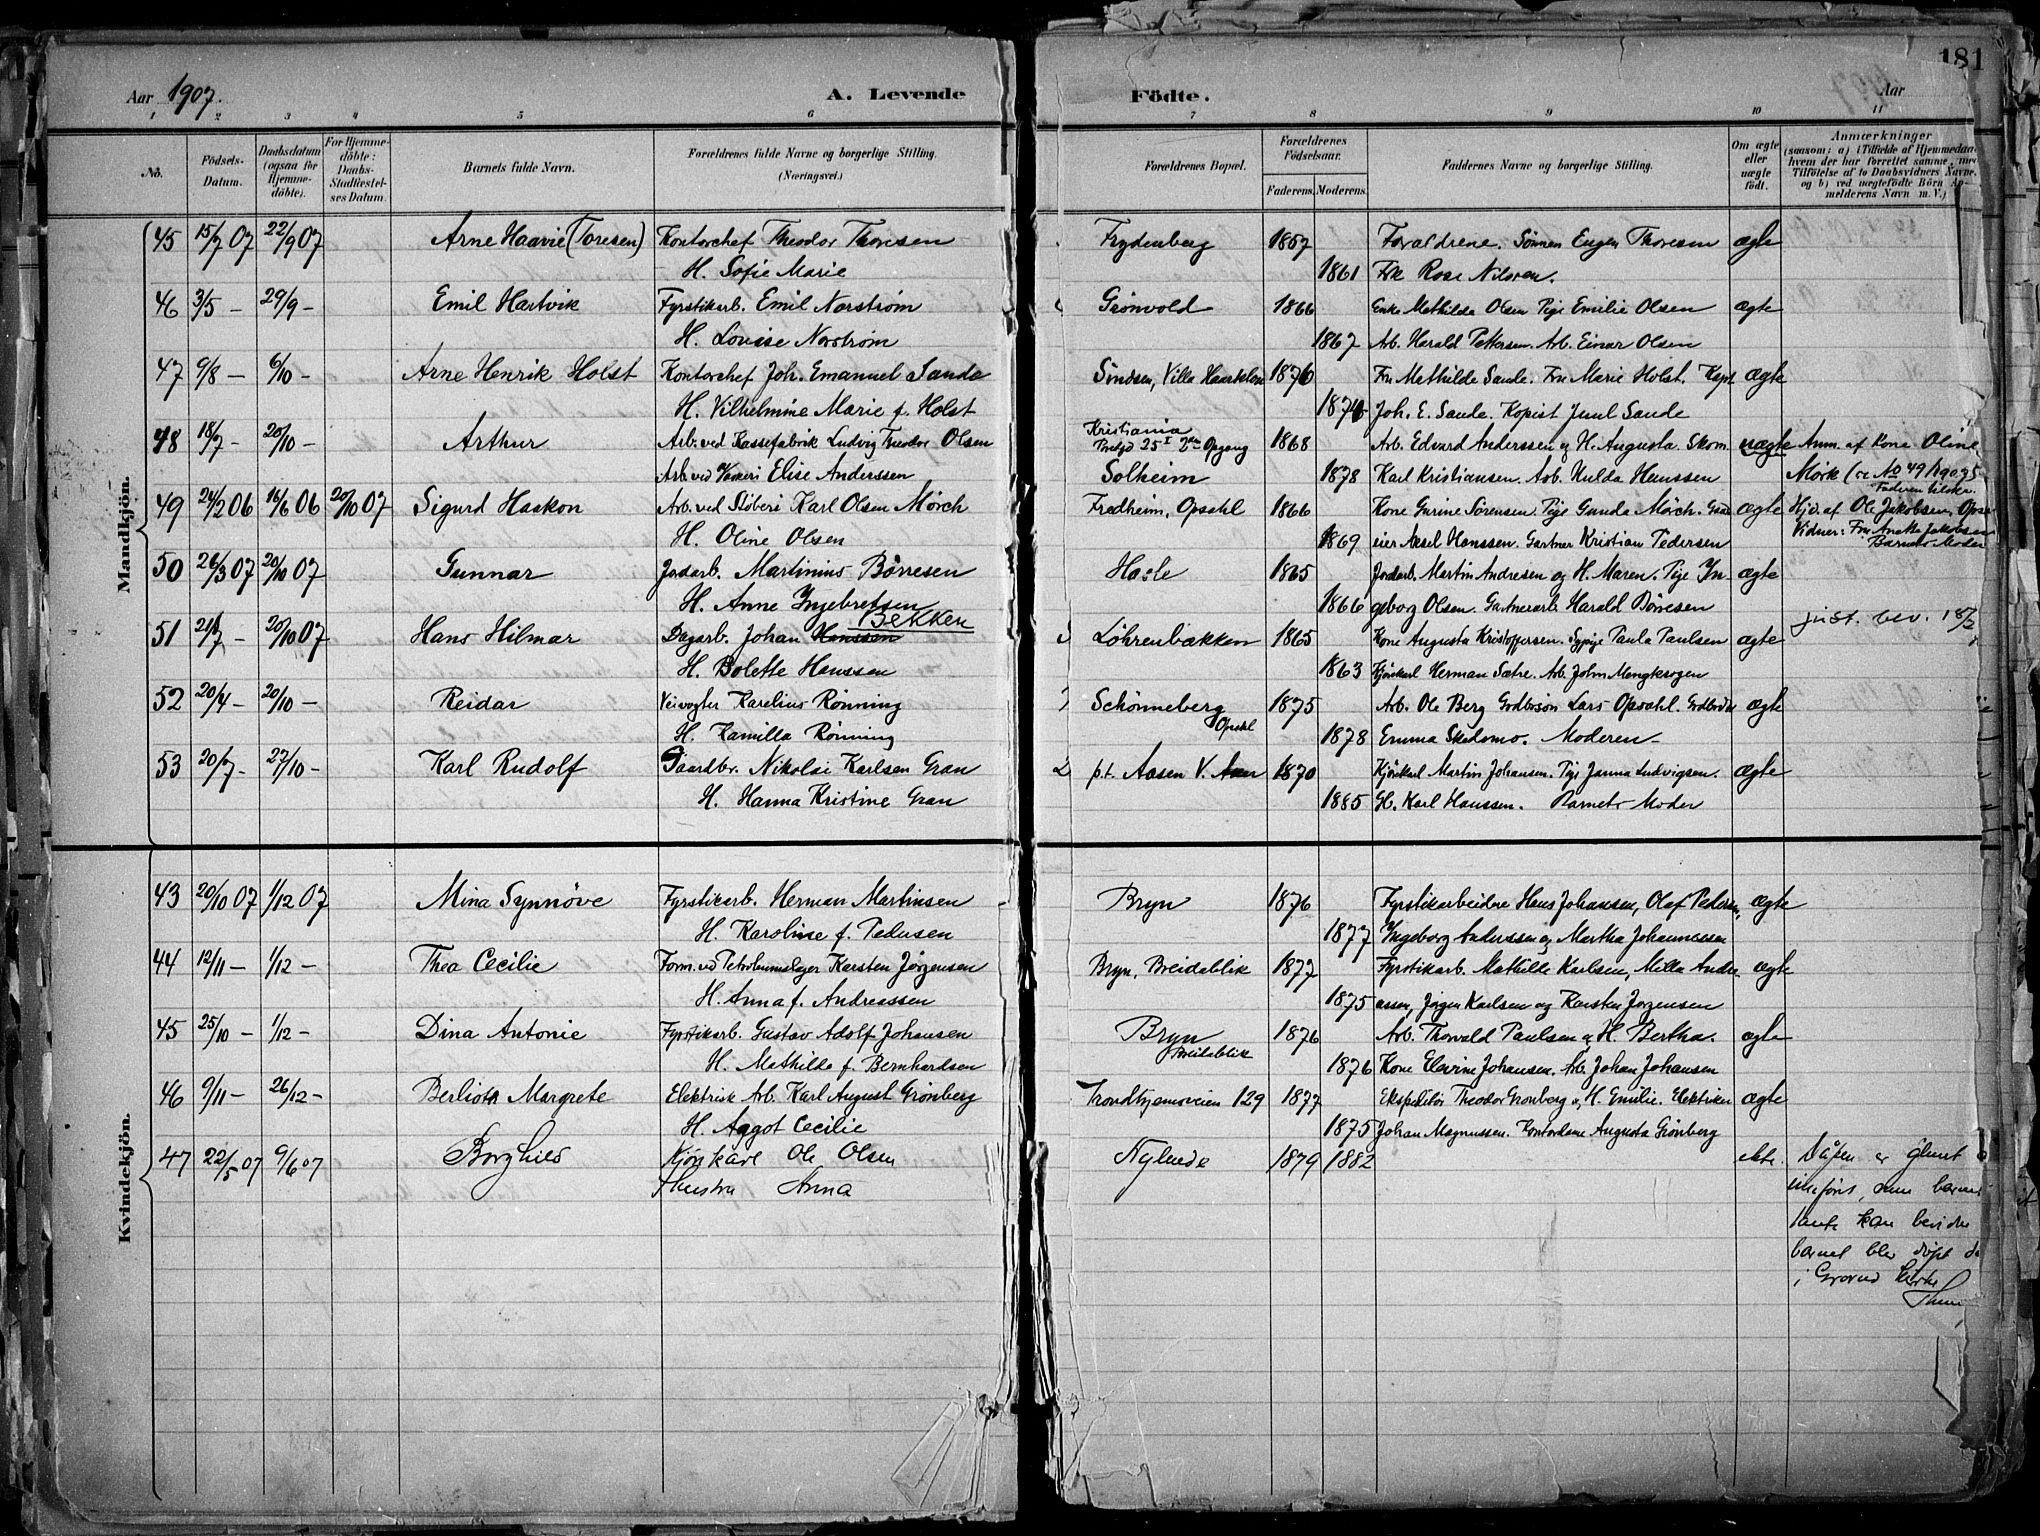 181
Aar 1907.
A. Levende
Födte.
Aar
1 2 3 4 5 6 7 8 9 10 11
No.
Födsels-Datum.
Daabsdatum (ogsaa for Hjemme-döbte).
For Hjemme-döbte: Daabs-Stadfæstel-ses Datum.
Barnets fulde Navn.
Forældrenes fulde Navne og borgerlige Stilling.
(Næringsvei.)
Forældrenes Bopæl.
Forældrenes Födselsaar.
Faderens. Moderens.
Faddernes Navne og borgerlige Stilling.
Om ægte eller uægte födt.
Anmærkninger
(saasom: a) i Tilfælde af Hjemmedaab
hvem der har forrettet samme, med
Tilföielse af to Daabsvidners Navne,
og b) ved uægtefödte Börn An-
melderens Navn m. V.)
Mandkjön.
45 15/7 07 22/9 07 Arne Haavie (Toresen) Kontorchef Theodor Thoresen Frydenberg 1867 Forældrene. Sønnen Eugen Thoresen ægte
H. Sofie Marie 1861 Frk Rosa Nilsen.
46 3/5 — 29/9 — Emil Hartvik Fyrstikarb. Emil Norstrøm Grønvold 1866 Enke Mathilda Olsen Pige Emilie Olsen ægte
H. Lovise Norstrøm 1867 Arb. Harald Pettersen. Arb. Einar Olsen
47 9/8 — 6/10 — Arne Henrik Holst Kontorchef Joh. Emanuel Sande Sinsen, Villa 1876 Fru Mathilde Sande. Fru Marie Holst. Kapt ægte
H. Vilhelmine Marie f. Holst 1874 Joh. E. Sande. Kopist Juul Sande
48 18/7 — 20/10 — Arthur Arb. ved Kassefabrik Ludvig Theodor Olsen Kristiania
25 I 2den Opgang 1868 Arb. Edvard Anderssen og H. Augusta. Skom. uægte Anm. af Kone Oline
Arb. ved Væveri Elise Anderssen Solheim 1878 Karl Kristiansen. Arb. Hulda Hanssen Mørk (se No 49
49 24/2 06 16/6 06 20/10 07 Sigurd Haakon Arb. ved Støberi Karl Olsen Mörch Fredheim, Opsahl 1866 Kone Gurine Sörensen. Pige Gunda Mörch. Gaard ægte Hjd. af Ole Jakobsen, Opsa
H. Oline Olsen 1869 eier Aksel Hanssen. Gartner Kristian Pedersen Vidner: Fru Anette Jakobsen
Barnets Moder
50 26/3 07 20/10 07 Gunnar Jordarb. Martinius Börresen Hasle 1865 Jordarb. Martin Andresen og H. Maren. Pige In- ægte
H. Anne Ingebretsen 1866 geborg Olsen. Gartnerarb. Harald Börresen
Bekken
51 21/7 — 20/10 07 Hans Hilmar Dagarb. Johan Hanssen Løhrenbakken 1865 Kone Augusta Kristoffersen. Sypige Paula Paulsen ægte just. bev. 18/2
H. Bolette Hanssen 1863 Kjörekarl Herman Sætre. Arb. John Mengkrogen
52 20/4 — 20/10 — Reidar Veivogter Karelius Rønning Schønneberg 1875 Arb. Ole Berg Lars Opsahl. ægte
Opsahl
H. Kamilla Rønning 1878 Emma Skedsmo. Moderen —
53 20/7 — 27/10 — Karl Rudolf Gaardbr. Nikolai Karlsen Gran p.t. Aasen V. Aker 1870 Kjörekarl Martin Johansen. Pige Janna Ludvigsen. ægte
H. Hanna Kristine Gran 1885 Gb. Karl Hanssen. Barnets Moder
Kvindekjön.
43 20/10 07 1/12 07 Mina Synnöve Fyrstikarb. Herman Martinsen Bryn 1876 Fyrstikarbeidere Hans Johansen, Olaf Pedersen, ægte
H. Karoline f. Pedersen 1877 Ingeborg Anderssen og Martha Johannessen
44 12/11 — 1/12 — Thea Cecilie Form. ved Petroleumslager Karsten Jörgensen Bryn, Breidablik 1877 Fyrstikarb. Mathilde Karlsen, Milla Andre- ægte
H. Anna f. Andreassen 1875 assen, Jörgen Karlsen og Karsten Jörgensen
45 25/10 — 1/12 — Dina Antonie Fyrstikarb. Gustav Adolf Johansen Bryn 1876 Arb. Thorvald Paulsen og H. Bertha. ægte
Breidablik
H. Mathilde f. Bernhardsen 1876 Kone Elevine Johansen. Arb. Johan Johansen
46 9/11 — 26/12 — Berliot Margrete Elektrisk Arb. Karl August Grønberg Trondhjemsveien 129 1877 Ekspeditör Theodor Grønberg og H. Emilie. Elektriker ægte
H. Aagot Cecilie 1875 Johan Magnussen. Kontordame Augusta Grønberg
47 22/5 07 9/6 07 Borghild Kjörekarl Ole Olsen Nylænde 1879 1882 ekte. Dåpen er glemt
Hustru Anna innført, men barnets
tante kan bevidne
barnet blev døpt
i Grorud kirke